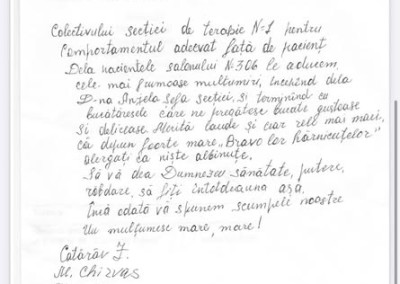 Colectivului secției de terapie N-1 pentru
Comportamentul adecvat față de pacient
Dela pacientele salonului N306 le aducem
cele mai frumoase mulțumiri, începînd dela
D-na Anjela Șefa secției, și terminînd cu
bucătăresele care ne pregătesc bucate gustoase
și delicioase. Merită laude și cear rele mai mari,
că depun foarte mare „Bravo lor hărnicuțelor"
alergați ca niște albinuțe.
Să vă dea Dumnezeu sănătate, putere,
răbdare, să fiți întotdeauna așa.
Încă odată vă spunem scumpele noastre
Un mulțumesc mare, mare!
Catărău J.
M. Chirvas